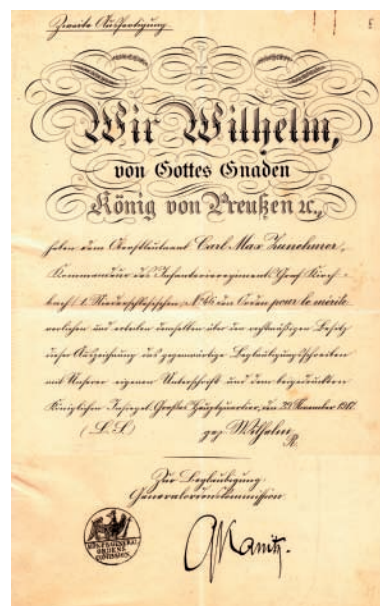 Zweite Ausfertigung
Wir Wilhelm,
von Gottes Gnaden
König von Preußen ꝛc.,
haben dem Oberstleutnant Carl Max Zunehmer,
Kommandeur des Infanterieregiments Graf Kirch-
bach (1. Niederschlesischen) № 46 den Orden pour le mérite
verliehen und erteilen demselben über den rechtmäßigen Besitz
dieser Auszeichnung das gegenwärtige Beglaubigungsschreiben
mit Unserer eigenen Unterschrift und dem beigedruckten
Königlichen Insiegel. Großes Hauptquartier, den November 1917.
(L. S.) gez. Wilhelm
R.
Zur Beglaubigung:
Generalordenskommission
ORDENS
Kanitz.